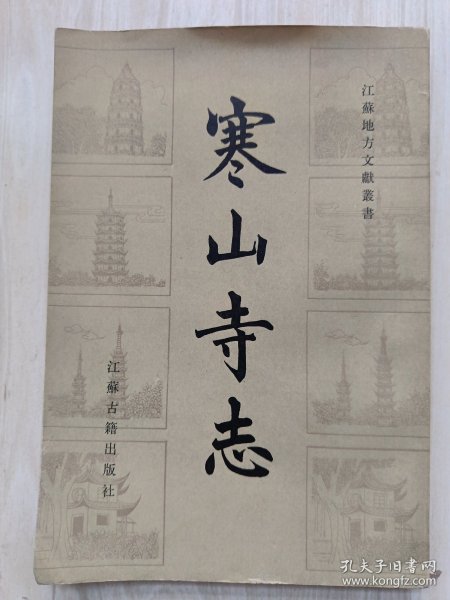 江蘇地方文獻叢書
寒山寺志
江蘇古籍出版社
孔夫子旧书网
www.kongfz.com